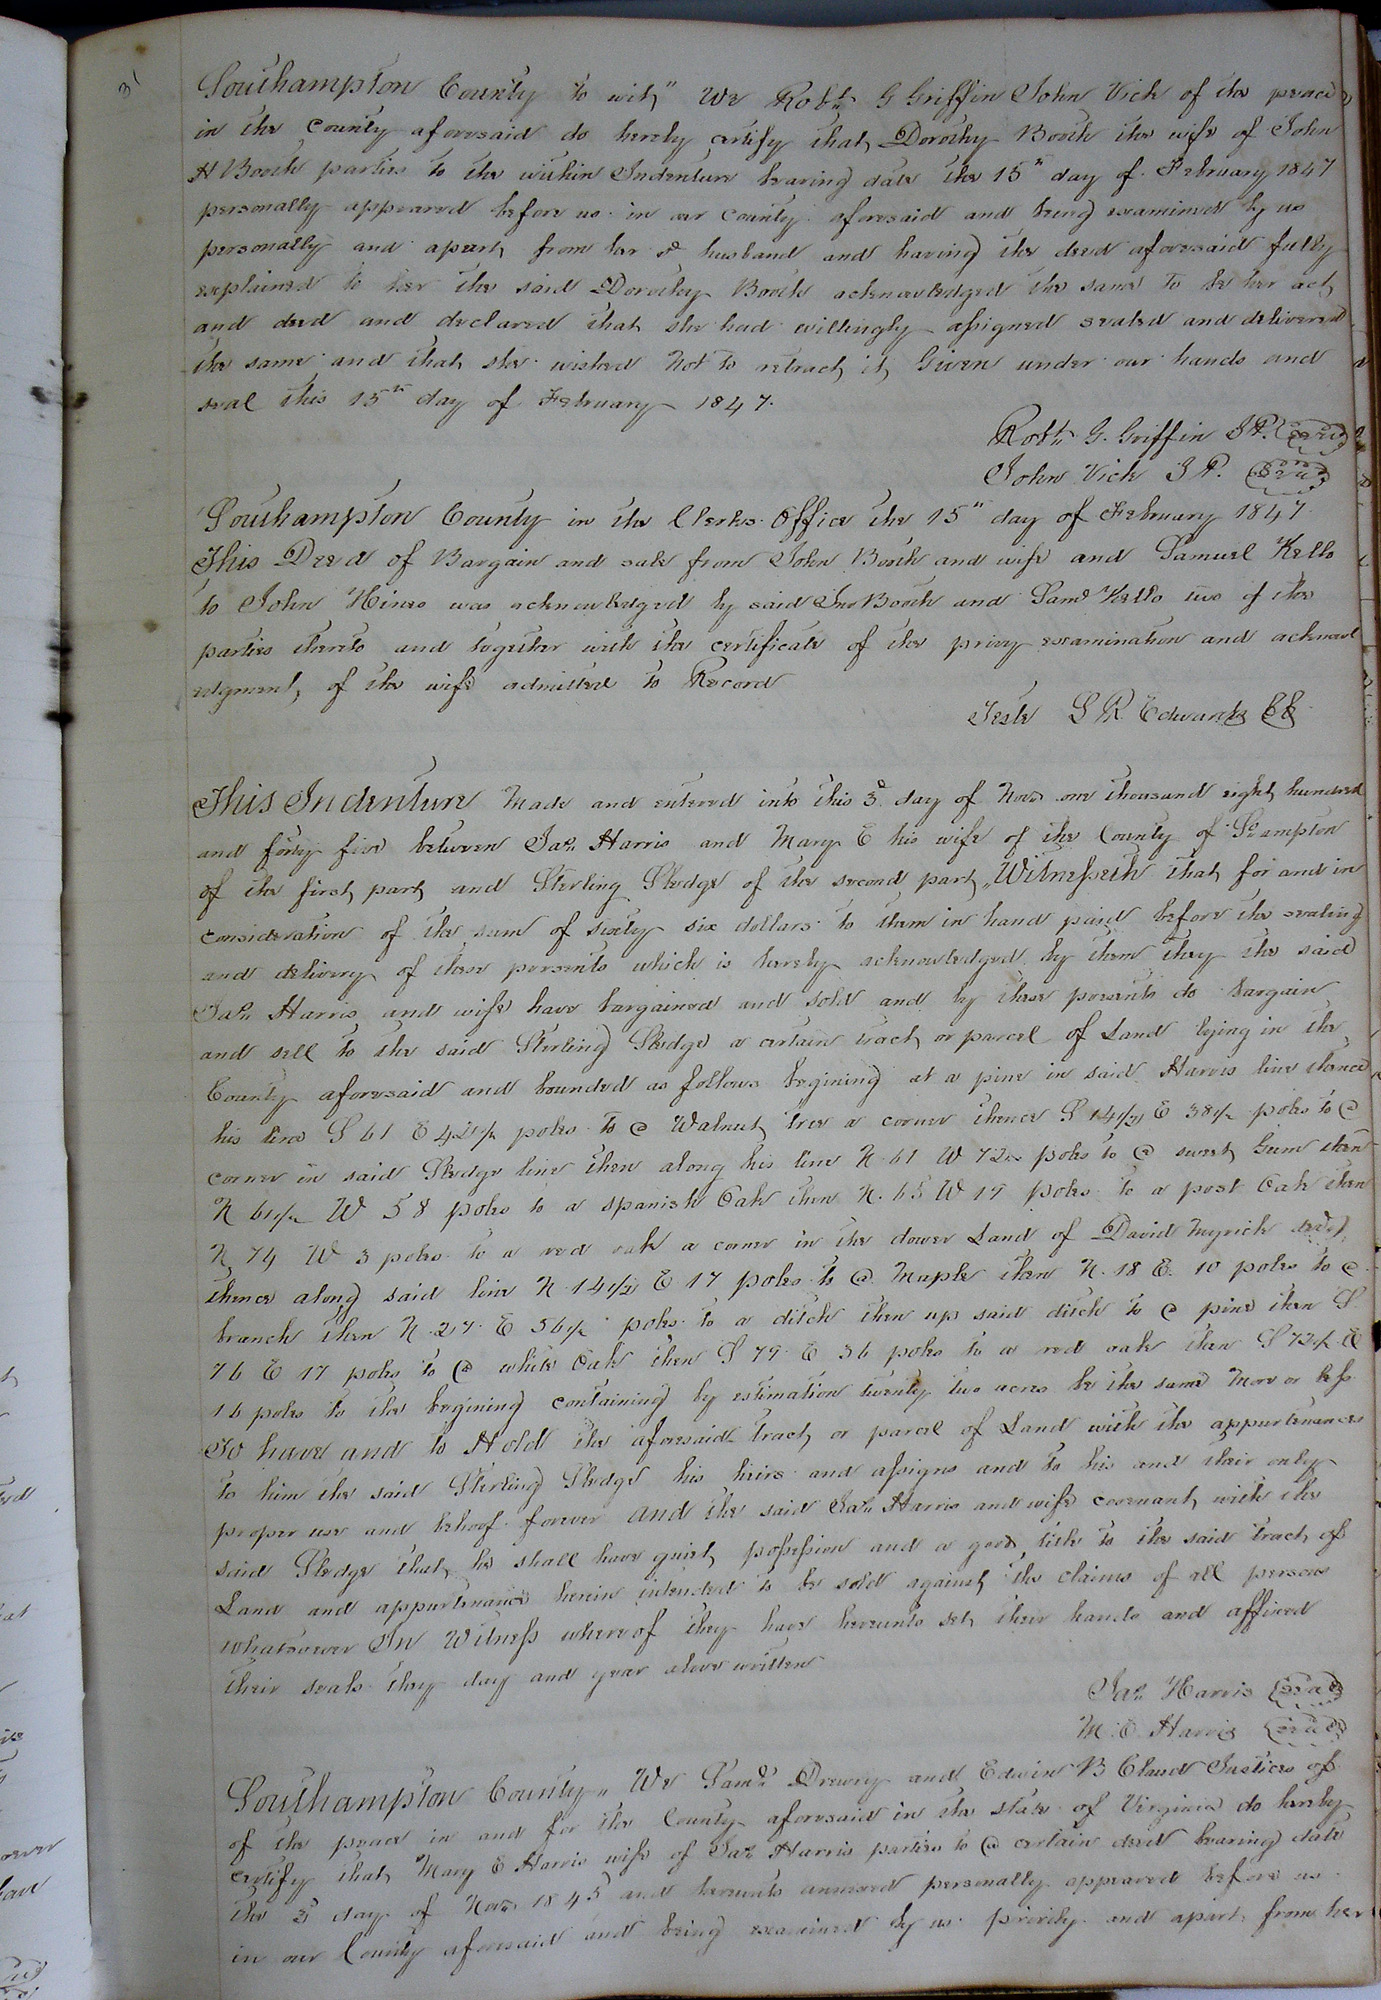 31
Southampton County to wit," We Robt. G Griffin John Vick of the peace
in the County aforesaid do hereby certify that Dorothy Booth the wife of John
H Booth parties to the within Indenture bearing date the 15th day of February 1847
personally appeared before us in our County aforesaid and being examined by us
personally and apart from her sd husband and having the deed aforesaid fully
explained to her she the said Dorothy Booth acknowledged the same to be her act
and deed and declared that she had willingly assigned sealed and delivered
the same and that she wished not to retract it Given under our hands and
seal this 15th day of February 1847.
Robt. G. Griffin J.P. Seal
John Vick J.P. Seal
Southampton County in the Clerks Office the 15th day of February 1847
This Deed of Bargain and sale from John Booth and wife and Samuel Kello
to John Hines was acknowledged by said Jno Booth and Saml Kello two of the
parties thereto and together with the certificate of the privy examination and acknowl
edgment, of the wife admitted to Record
Teste L R Edwards CC
This Indenture Made and entered into this 3d day of Novr one thousand eight hundred
and forty five between Jas. Harris and Mary E his wife of the County of S.hampton
of the first part and Sterling Sledge of the second part, Witnesseth that for and in
consideration of the sum of sixty six dollars to them in hand paid before the sealing
and delivery of these presents which is hereby acknowledged by them they the said
Jas. Harris and wife have bargained and sold and by these presents do bargain
and sell to the said Sterling Sledge a certain tract or parcel of Land lying in the
County aforesaid and bounded as follows begining at a pine in said Harris line thence
his line S 61 E 42½ poles to a Walnut tree a corner thence S 14½ E 38½ poles to a
corner in said Sledge line then along his line N. 61 W 72 poles to a sweet Gum then
N 61½ W 58 poles to a spanish Oak then N. 65 W 19 poles to a post Oak then
N 74 W 3 poles to a red oak a corner in the dower Land of David Myrick decd
thence along said line N 14½ E 17 poles to a Maple then N. 18 E. 10 poles to a
branch then N 27 E 56½ poles to a ditch then up said ditch to a pine then S
76 E 17 poles to a white Oak then S 79 E 36 poles to a red oak then S 72½ E
16 poles to the begining containing by estimation twenty two acres be the same More or less
To have and to Hold the aforesaid tract or parcel of Land with the appurtenances
to him the said Sterling Sledge his heirs and assigns and to his and their only
proper use and behoof forever and the said Jas. Harris and wife covenant with the
said Sledge that he shall have quiet possession and a good title to the said tract of
Land and appurtenance herein intended to be sold against the claims of all persons
whatsoever In Witness whereof they have hereunto set their hands and affixed
their seals they day and year above written
Jas. Harris Seal
M. E. Harris Seal
Southampton County, We Saml. Drewry and Edwin B Claud Justices of
of the peace in and for the County aforesaid in the state of Virginia do hereby
certify that Mary E Harris wife of Jas. Harris parties to a certain deed bearing date
the 3 day of Novr 1845 and hereunto annexed personally appeared before us
in our County aforesaid and being examined by us privily and apart from her